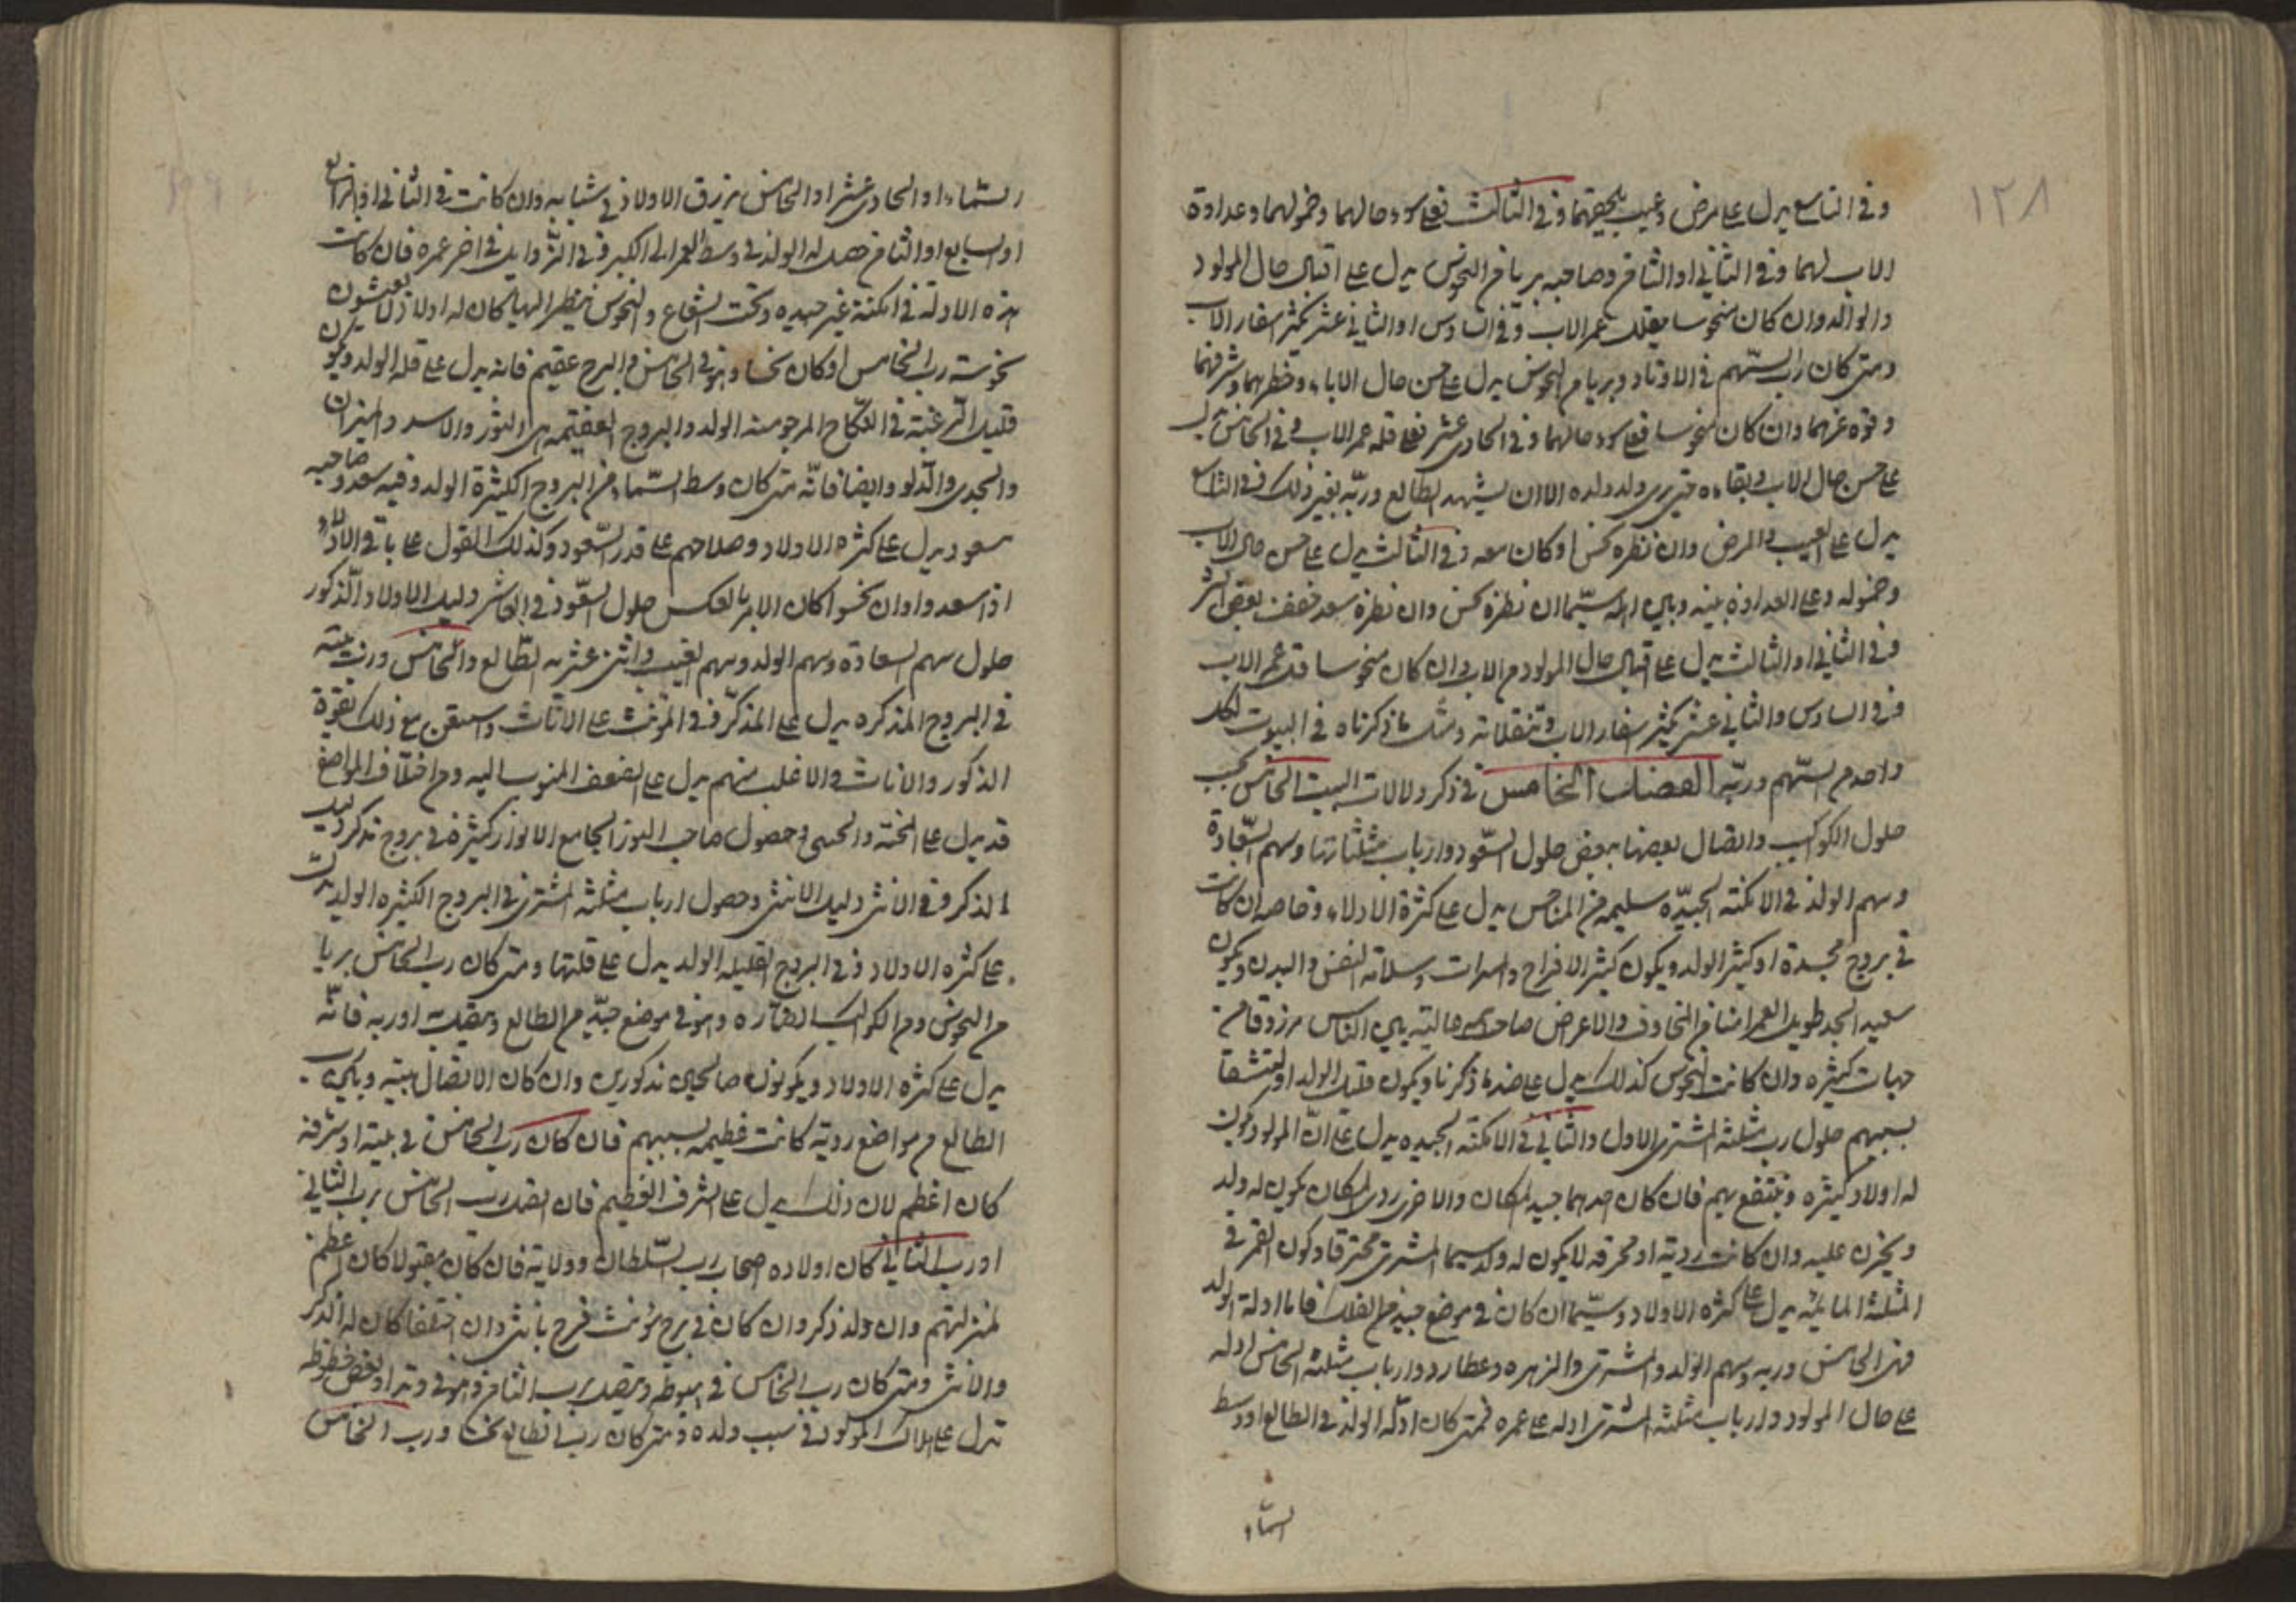 ١٢٨
وفى التاسع يدل على مرض وعيب يلحقهما وفى الثالث فعلى سوء حالهما وخمولهما وعداوة
الاب لهما وفى الثانى او الثامن وصاحبه برىا من النحوس يدل على اقبال حال المولود
والوالد وان كان منحوسا يقلل عمر الاب وفى السادس او الثانى عشر يكثر اسفار الاب
ومتى كان رب السهم فى الاوتاد وبريا من النحوس يدل على حسن حال الاباء وخطرهما وشرفهما
وقوة عزهما وان كان منحوسا فعلى سوء حالهما وفى الحادى عشر فعلى قلة عمر الاب وفى الخامس يدل
على حسن حال الاب وبقاءه حتى يرى ولد ولده الا ان يشهد الطالع وربه بغير ذلك وفى التاسع
يدل على العيب والمرض وان نظره نحس او كان معه وفى الثالث يدل على حسن حال الاب
وخموله وعلى العداوة بينه وبين اهله سيما ان نظره نحس وان نظره سعد خفف بعض الشر
وفى الثانى او الثالث يدل على اقبال حال المولود من الاب وان كان منحوسا قل عمر الاب
وفى السادس والثانى عشر يكثر اسفار الاب وتنقلاته ومثل ما ذكرناه فى البيوت لكل
واحد من السهم وربه الفصل الخامس فى ذكر دلالات البيت الخامس بحسب
حلول الكواكب واتصال بعضها ببعض حلول السعود وارباب مثلثاتها وسهم السعادة
وسهم الولد فى الامكنة الجيدة سليمة من المناحس يدل على كثرة الاولاد وخاصه ان كانت
فى بروج مجسدة او كثير الولد ويكون كثير الافراح والمسرات وسلامة النفس والبدن ويكون
سعيد الجد طويل العمر امنا من المخاوف والاعراض صاحب عالية بين الناس مرزوقا من
جهات كثيره وان كانت النحوس كذلك يدل على ضد ما ذكرنا ويكون قليل الولد او
بسببهم حلول رب مثلثة المشترى الاول والثانى فى الامكنة الجيده يدل على ان المولود يكون
له اولاد كثيره وينتفع بهم فان كان احدهما جيد المكان والاخر ردى المكان يكون له ولد
ويحزن عليه وان كانت ردية او محرقه لا يكون له ولد سيما المشترى محترقا وكون القمر فى
المثلثة المائيه يدل على كثره الاولاد وسيما ان كان فى موضع جيد من الفلك فاما ادلة الولد
فهى الخامس وربه وسهم الولد والمشترى والزهره وعطارد وارباب مثلثة الخامس ادله
على حال المولود وارباب مثلثة المشترى ادله على عمره فمتى كان ادلة الولد فى الطالع او وسط
السماء
السماء او الحادى عشر او الخامس يرزق الاولاد فى شبابه وان كانت فى الثانى او الرابع
او السابع او الثامن حصل له الولد فى وسط العمر الى الكبر وفى الزوايل فى اخر عمره فان كانت
هذه الادلة فى امكنة غير جيده وتحت الشعاع والنحوس ينظر اليها كان له اولاد لا يعيشون
نحوسته رب الخامس او كان نحسا وهو فى الخامس والبرج عقيم فانه يدل على قلة الولد ويكون
قليل الرغبة فى النكاح المرجو منه الولد والبروج العقيمه هى الثور والاسد والميزان
والجدى والدلو وايضا فانه متى كان وسط السماء من البروج الكثيرة الولد وفيه سعد وصاحبه
سعود يدل على كثره الاولاد وصلاحهم على قدر السعود وكذلك القول على باقى الاوتاد
اذا سعدوا وان نحسوا كان الامر بالعكس حلول السعود فى العاشر دليل الاولاد الذكور
حلول سهم السعادة وسهم الولد وسهم الغيب واثنى عشرية الطالع والخامس ورب بيته
فى البروج المذكره يدل على المذكر وفى المؤنث على الاناث واستعن مع ذلك بقوة
الذكور والاناث والاغلب منهم يدل على الضعف المنوب اليه ومن اختلاف المواضع
قد يدل على الخنثه والخصى وحصول صاحب النور الجامع الانوار كثيرة فى بروج مذكر دليل
الذكر وفى الانثى دليل الانثى وحصول ارباب مثلثة المشترى فى البروج الكثيره الولد يدل
على كثره الاولاد وفى البروج القليله الولد يدل على قلتها ومتى كان رب الخامس بريا
من النحوس ومن الكواكب الضاره وهو فى موضع جيد من الطالع ومتصل به او ربه فانه
يدل على كثره الاولاد ويكونون صالحين مذكورين وان كان الاتصال بينه وبين رب
الطالع من مواضع ردية كانت قطيعه بسببهم فان كان رب الخامس فى بيته او شرفه
كان اعظم لان ذلك يدل على الشرف العظيم فان اتصل رب الخامس برب الثانى
او رب الثانى كان اولاده اصحاب رب السلطان وولاية فان كان مقبولا كان اعظم
لمنزلتهم وان ولد ذكر وان كان فى برج مؤنث فرح بانثى وان اختلفا كان له الذكر
والانثى ومتى كان رب الخامس فى هبوطه ومتصل برب الثامن وهو فى وتد او بعض حظوظه
تدل على هلاك المولود فى سبب ولده ومتى كان رب الطالع نحسا ورب الخامس